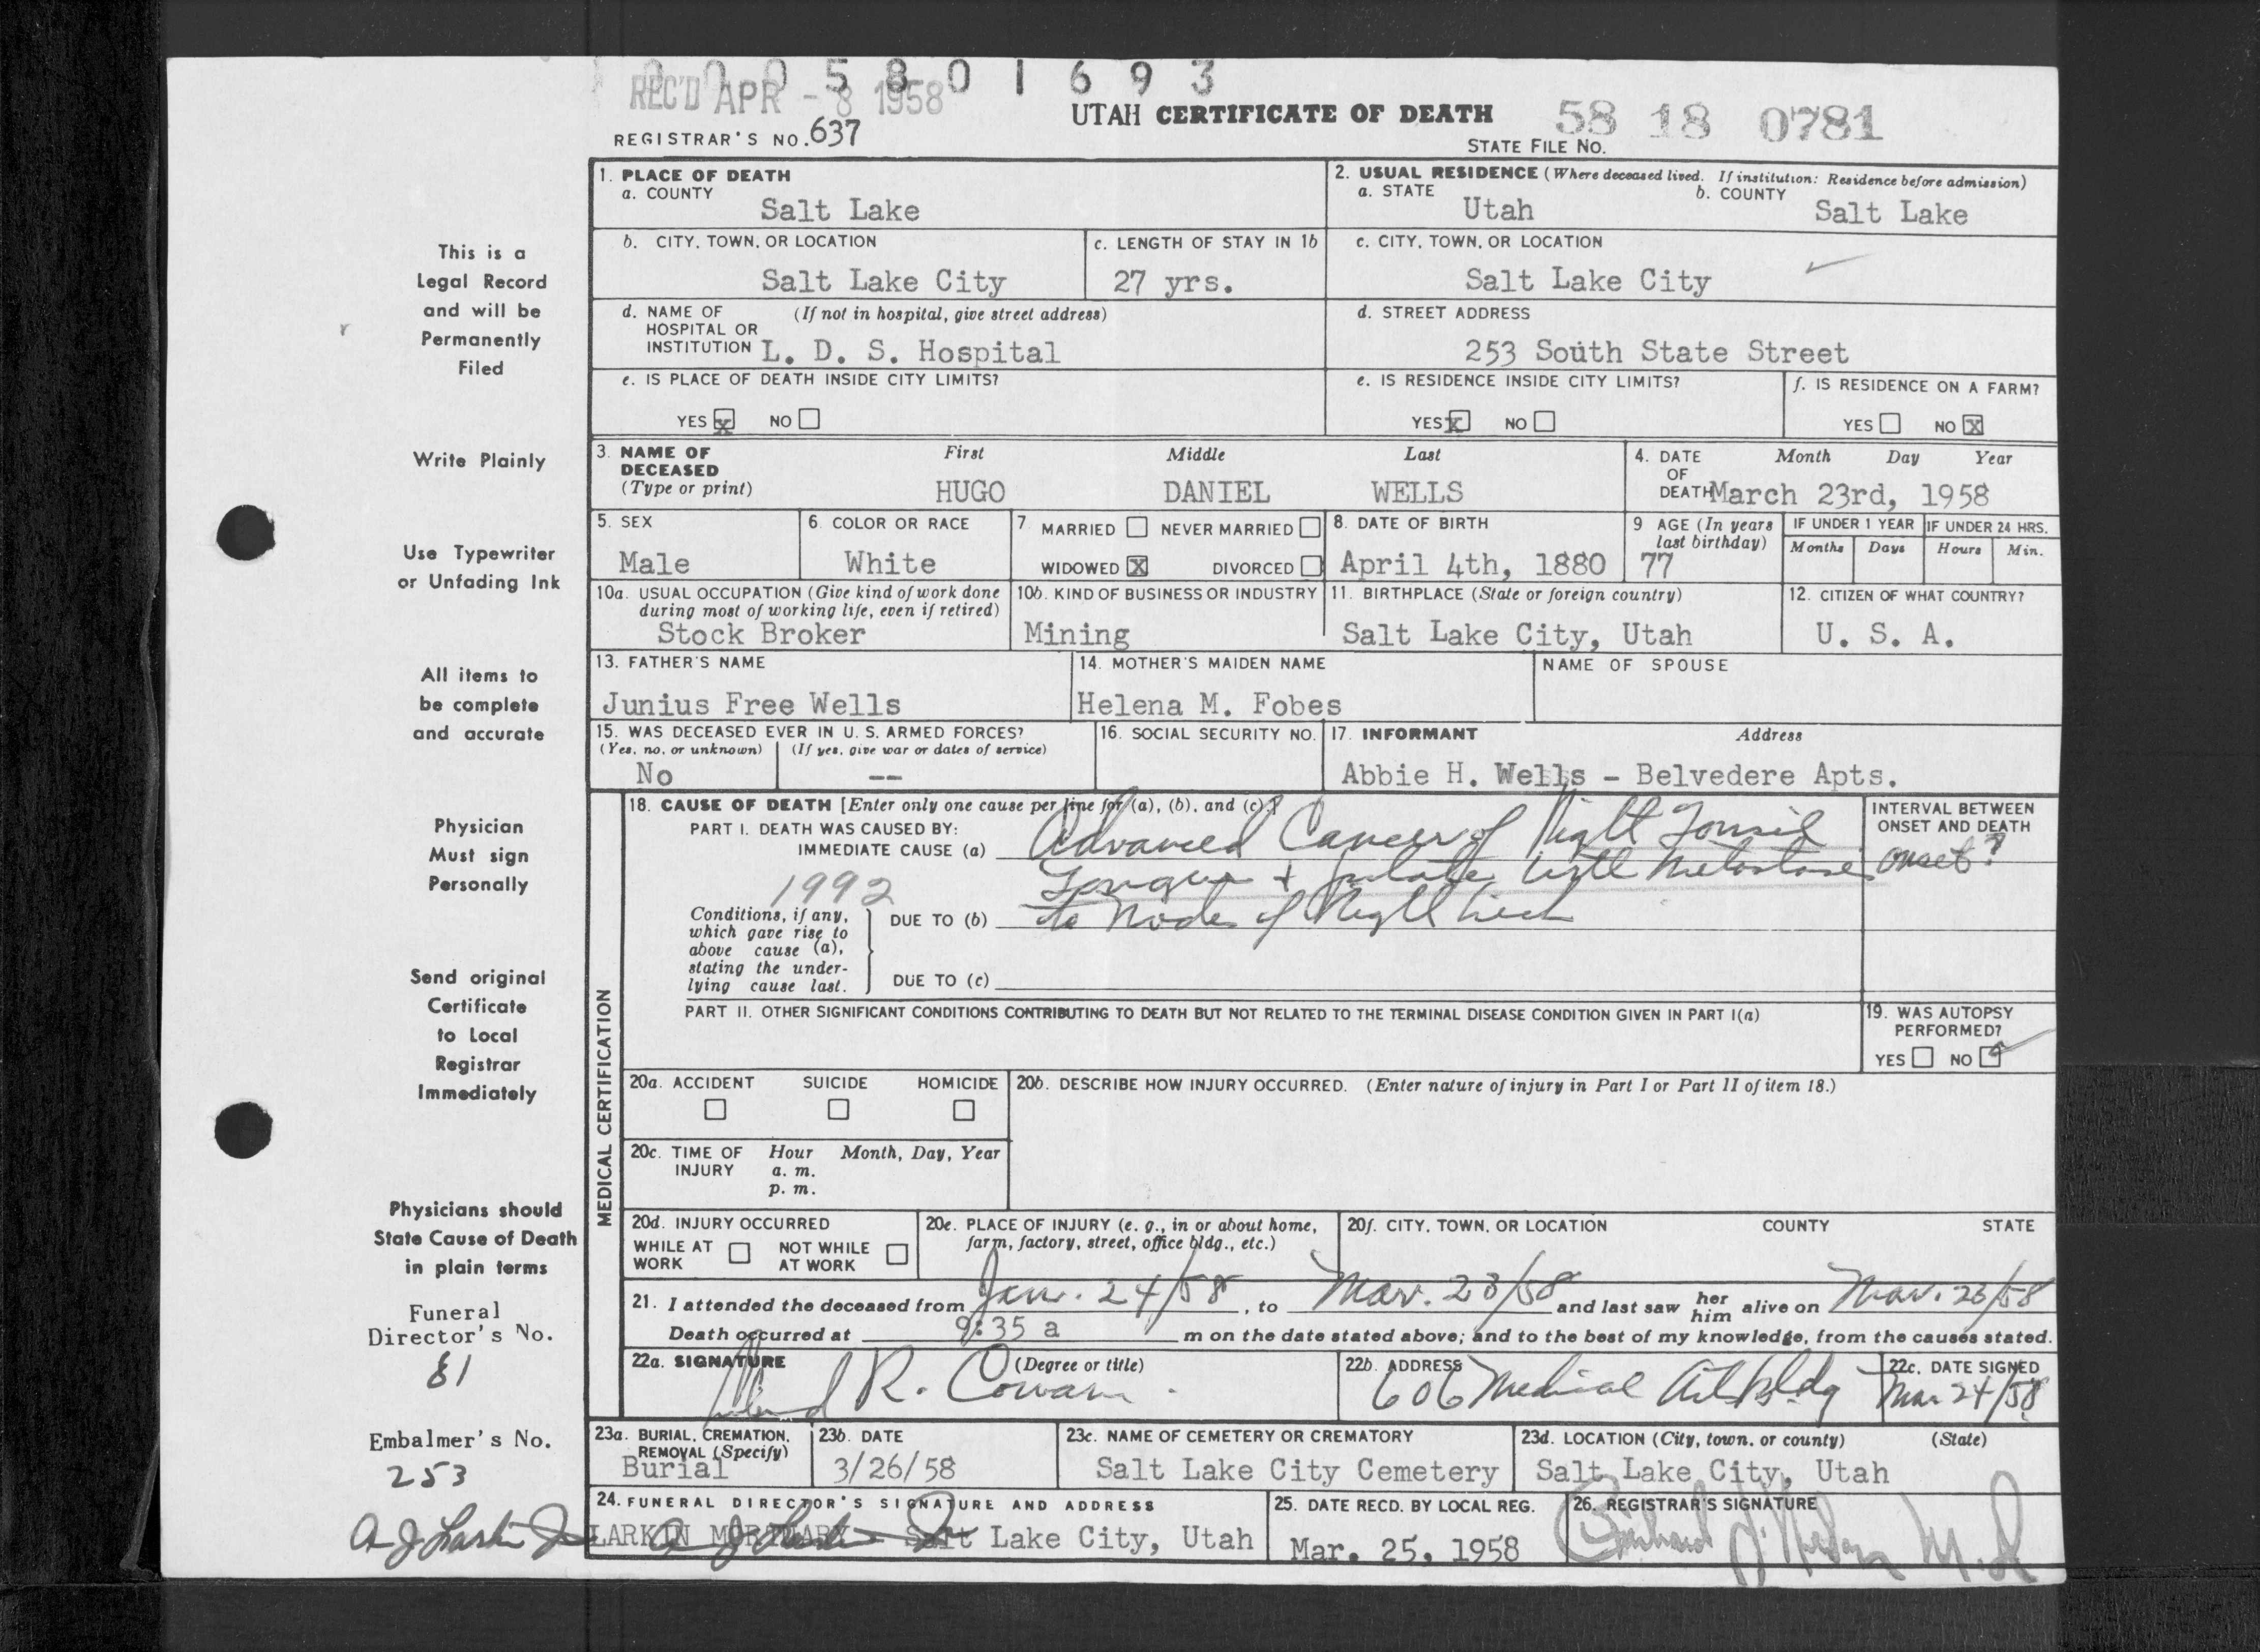 0005801693
REC'D APR - 8 1958
UTAH CERTIFICATE OF DEATH
58 18 0781
REGISTRAR'S NO. 637
STATE FILE NO.
This is a
Legal Record
and will be
Permanently
Filed
Write Plainly
Use Typewriter
or Unfading Ink
All items to
be complete
and accurate
Physician
Must sign
Personally
Send original
Certificate
to Local
Registrar
Immediately
Physicians should
State Cause of Death
in plain terms
Funeral
Director's No.
81
Embalmer's No.
253
A J Larkin Jr
1. PLACE OF DEATH
a. COUNTY
Salt Lake
2. USUAL RESIDENCE (Where deceased lived. If institution: Residence before admission)
a. STATE b. COUNTY
Utah Salt Lake
b. CITY, TOWN, OR LOCATION
Salt Lake City
c. LENGTH OF STAY IN 1b
27 yrs.
c. CITY, TOWN, OR LOCATION
Salt Lake City
d. NAME OF (If not in hospital, give street address)
HOSPITAL OR
INSTITUTION L. D. S. Hospital
d. STREET ADDRESS
253 South State Street
e. IS PLACE OF DEATH INSIDE CITY LIMITS?
YES X NO
e. IS RESIDENCE INSIDE CITY LIMITS?
YES X NO
f. IS RESIDENCE ON A FARM?
YES NO X
3. NAME OF First Middle Last
DECEASED
(Type or print) HUGO DANIEL WELLS
4. DATE Month Day Year
OF
DEATH March 23rd, 1958
5. SEX
Male
6. COLOR OR RACE
White
7. MARRIED NEVER MARRIED
WIDOWED X DIVORCED
8. DATE OF BIRTH
April 4th, 1880
9 AGE (In years
last birthday)
77
IF UNDER 1 YEAR IF UNDER 24 HRS.
Months Days Hours Min.
10a. USUAL OCCUPATION (Give kind of work done
during most of working life, even if retired)
Stock Broker
10b. KIND OF BUSINESS OR INDUSTRY
Mining
11. BIRTHPLACE (State or foreign country)
Salt Lake City, Utah
12. CITIZEN OF WHAT COUNTRY?
U. S. A.
13. FATHER'S NAME
Junius Free Wells
14. MOTHER'S MAIDEN NAME
Helena M. Fobes
NAME OF SPOUSE
15. WAS DECEASED EVER IN U. S. ARMED FORCES?
(Yes, no, or unknown) (If yes, give war or dates of service)
No --
16. SOCIAL SECURITY NO.
17. INFORMANT Address
Abbie H. Wells - Belvedere Apts.
MEDICAL CERTIFICATION
18. CAUSE OF DEATH [Enter only one cause per line for (a), (b), and (c).]
PART I. DEATH WAS CAUSED BY:
IMMEDIATE CAUSE (a) Advanced Cancer of Right Tonsil
Tongue + palate with metastases
1992
Conditions, if any,
which gave rise to
above cause (a),
stating the under-
lying cause last.
DUE TO (b) to nodes of Right neck
DUE TO (c)
INTERVAL BETWEEN
ONSET AND DEATH
onset?
PART II. OTHER SIGNIFICANT CONDITIONS CONTRIBUTING TO DEATH BUT NOT RELATED TO THE TERMINAL DISEASE CONDITION GIVEN IN PART I(a)
19. WAS AUTOPSY
PERFORMED?
YES NO
20a. ACCIDENT SUICIDE HOMICIDE
20b. DESCRIBE HOW INJURY OCCURRED. (Enter nature of injury in Part I or Part II of item 18.)
20c. TIME OF Hour Month, Day, Year
INJURY a. m.
p. m.
20d. INJURY OCCURRED
WHILE AT NOT WHILE
WORK AT WORK
20e. PLACE OF INJURY (e. g., in or about home,
farm, factory, street, office bldg., etc.)
20f. CITY, TOWN, OR LOCATION COUNTY STATE
21. I attended the deceased from Jan. 24/58, to Mar. 23/58 and last saw her him alive on Mar. 23/58
Death occurred at 9:35 a m on the date stated above; and to the best of my knowledge, from the causes stated.
22a. SIGNATURE (Degree or title)
R. Cowan
22b. ADDRESS
606 Medical Art bldg
22c. DATE SIGNED
Mar 24/58
23a. BURIAL, CREMATION,
REMOVAL (Specify)
Burial
23b. DATE
3/26/58
23c. NAME OF CEMETERY OR CREMATORY
Salt Lake City Cemetery
23d. LOCATION (City, town, or county) (State)
Salt Lake City, Utah
24. FUNERAL DIRECTOR'S SIGNATURE AND ADDRESS
LARKIN MORTUARY Salt Lake City, Utah
A J Larkin Jr
25. DATE RECD. BY LOCAL REG.
Mar. 25, 1958
26. REGISTRAR'S SIGNATURE
Nelson M.D.